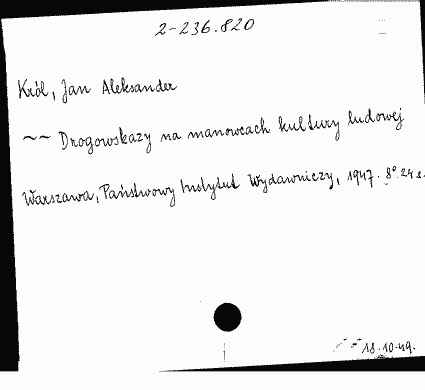 2-236.820
Król, Jan Aleksander
~~ Drogowskazy na manowcach kultury ludowej
Warszawa, Państwowy Instytut Wydawniczy, 1947. 8° 24 s.
18.10.49.